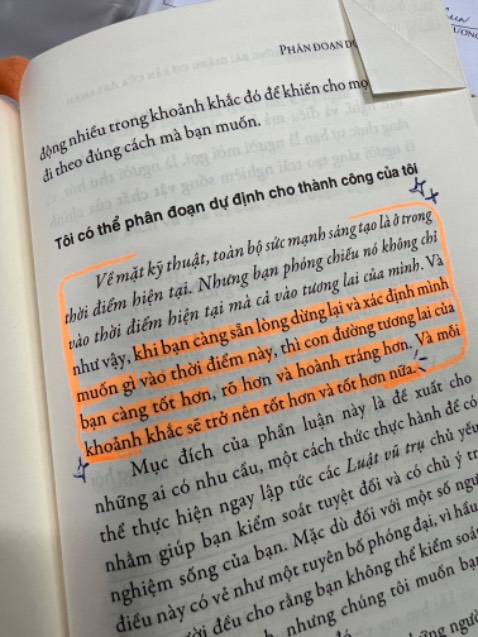 PHÂN ĐOẠN DỰ
động nhiều trong khoảnh khắc đó để khiến cho mọ
đi theo đúng cách mà bạn muốn.
Tôi có thể phân đoạn dự định cho thành công của tôi
Về mặt kỹ thuật, toàn bộ sức mạnh sáng tạo là ở trong
thời điểm hiện tại. Nhưng bạn phóng chiếu nó không chỉ
vào thời điểm hiện tại mà cả vào tương lai của mình. Và
như vậy, khi bạn càng sẵn lòng dừng lại và xác định mình
muốn gì vào thời điểm này, thì con đường tương lai của
bạn càng tốt hơn, rõ hơn và hoành tráng hơn. Và mỗi
khoảnh khắc sẽ trở nên tốt hơn và tốt hơn nữa.
Mục đích của phần luận này là đề xuất cho
những ai có nhu cầu, một cách thức thực hành để có
thể thực hiện ngay lập tức các Luật vũ trụ chủ yếu
nhằm giúp bạn kiểm soát tuyệt đối và có chủ ý tr
nghiệm sống của bạn. Mặc dù đối với một số ngư
điều này có vẻ như một tuyên bố phóng đại, vì hầu
đều cho rằng bạn không thể kiểm soá
nhưng chúng tôi muốn bạ